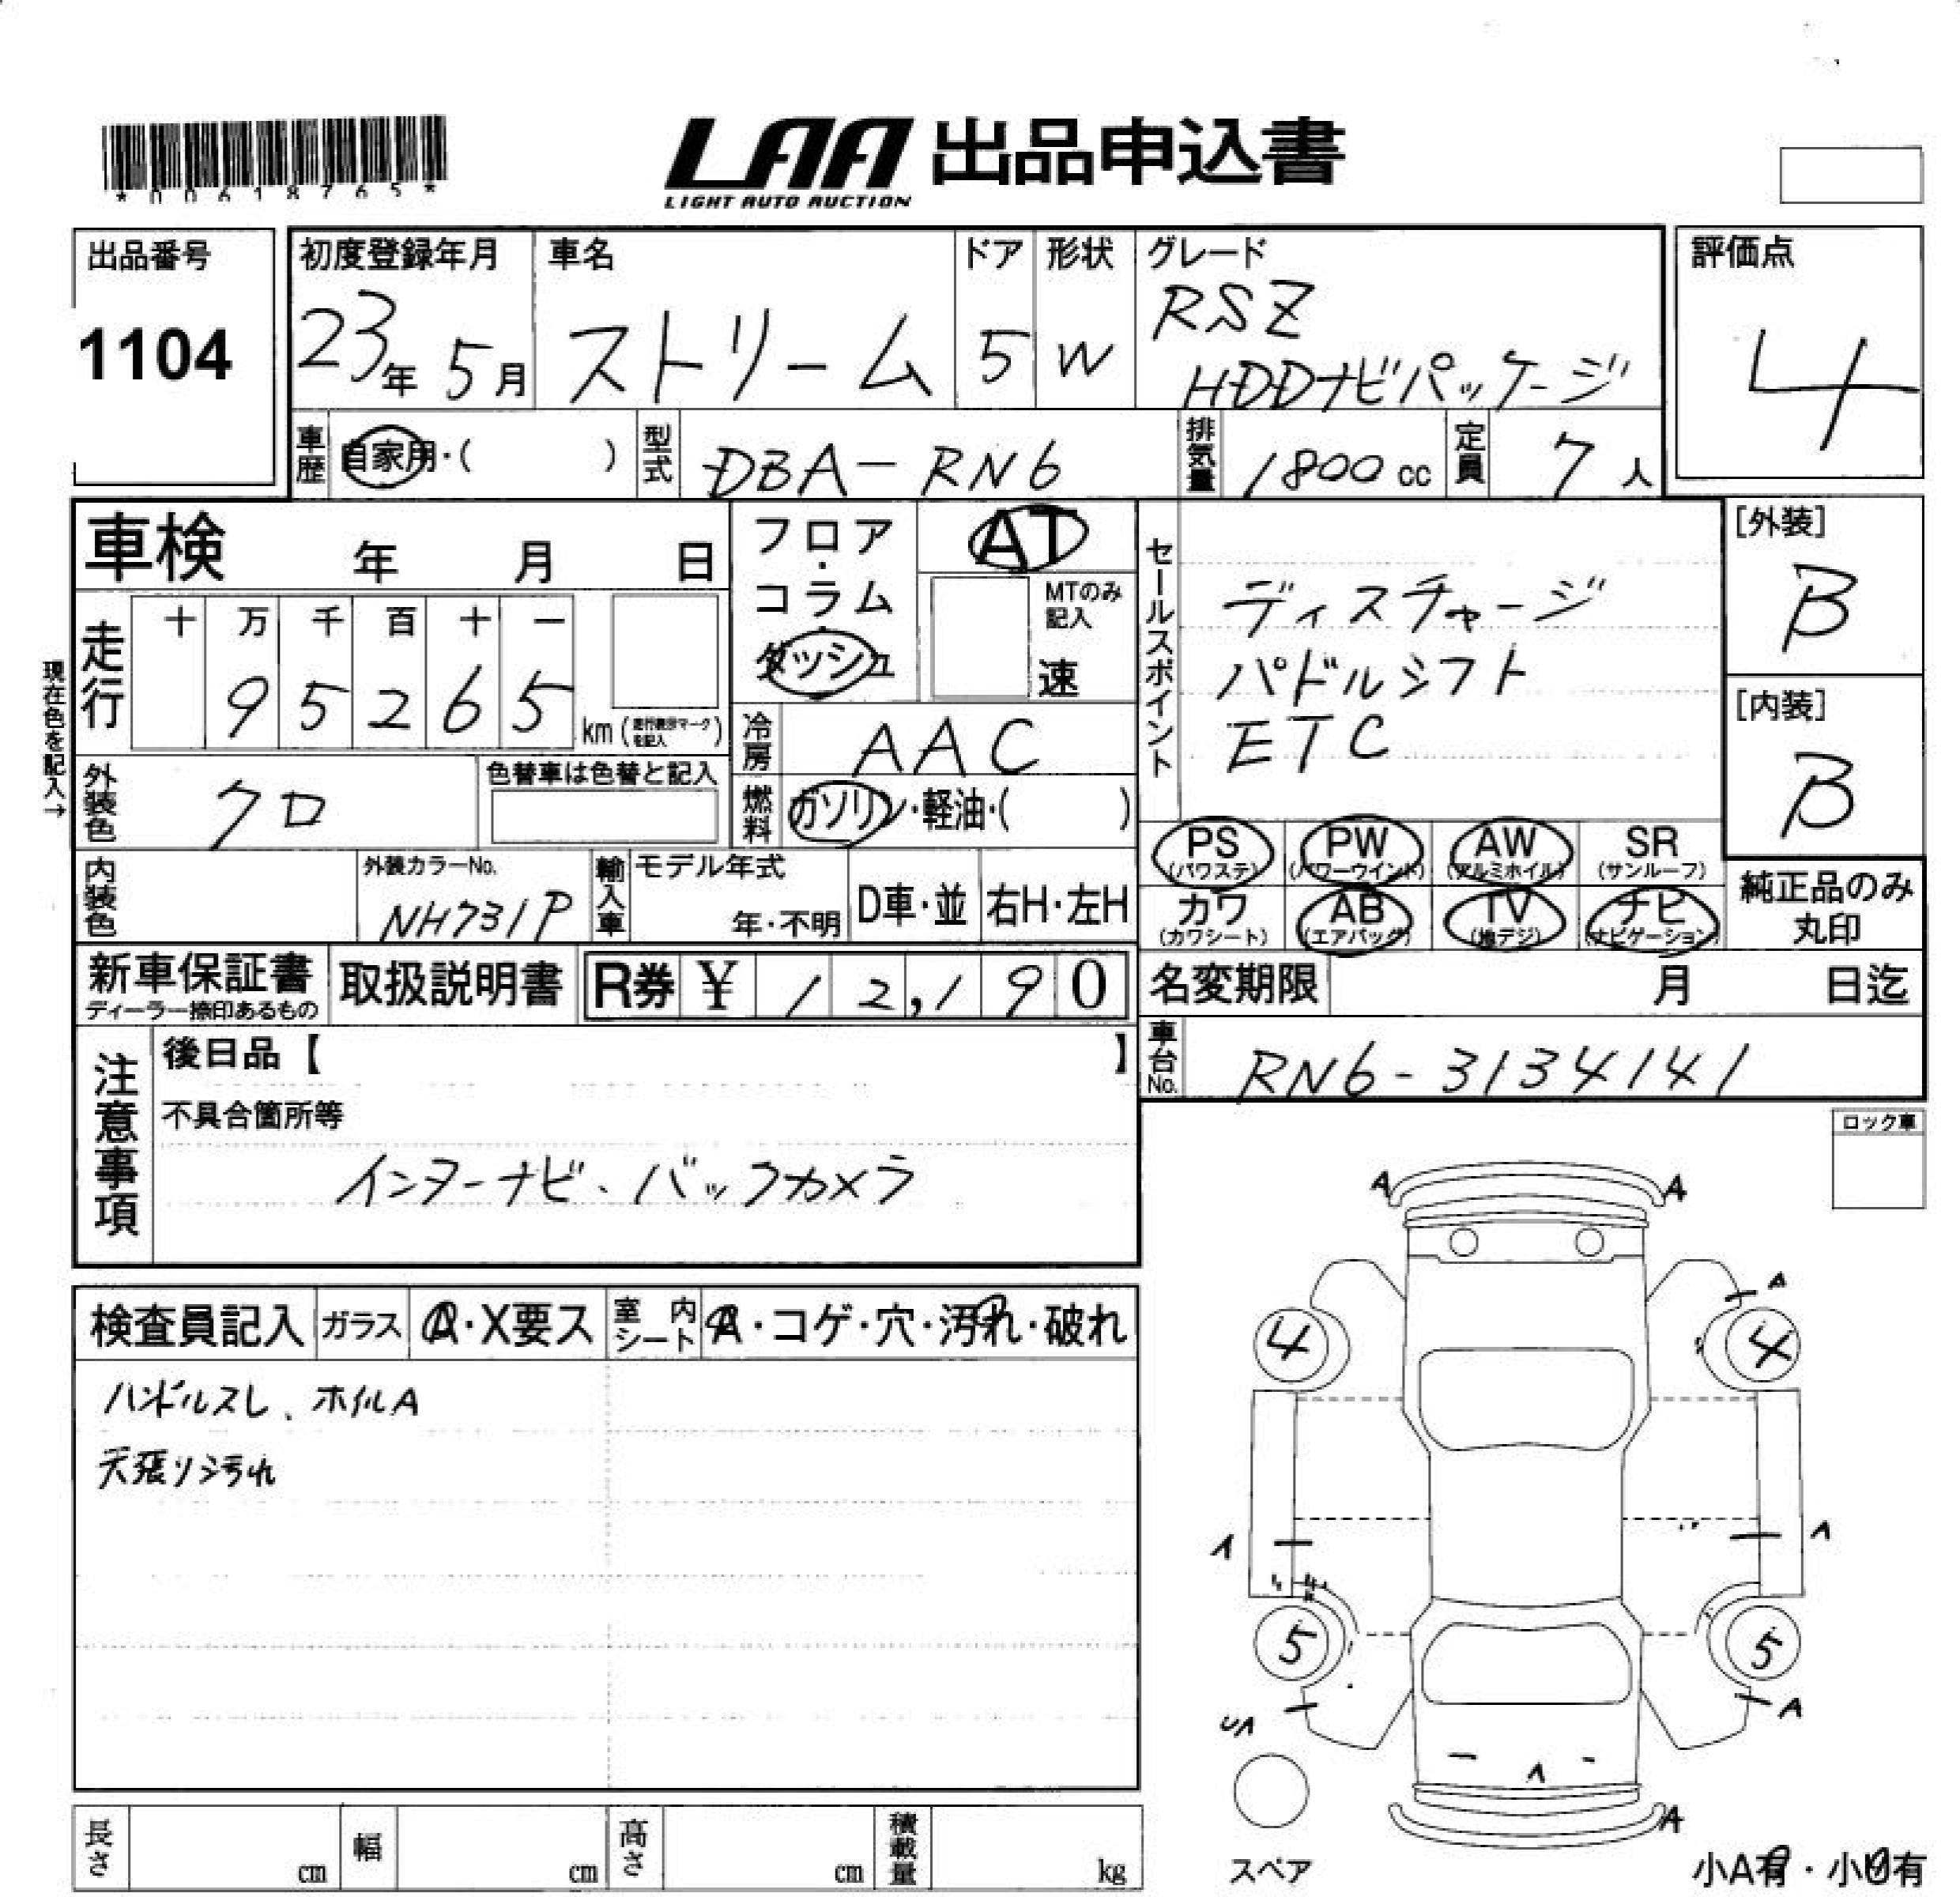 *00618765*
LAA 出品申込書
LIGHT AUTO AUCTION
出品番号
1104
初度登録年月
23年 5月
車名
ストリーム
ドア
5
形状
W
グレード
RSZ
HDDナビパッケージ
評価点
4
車歴
自家用・( )
型式
DBA-RN6
排気量
1800 cc
定員
7 人
車検 年 月 日
走行
十 万 千 百 十 一
9 5 2 6 5
km (走行表示マークを記入)
現在色を記入→
外装色
クロ
色替車は色替と記入
内装色
外装カラーNo.
NH731P
フロア
・
コラム
・
ダッシュ
AT
MTのみ
記入
速
冷房
AAC
燃料
ガソリン・軽油・( )
輸入車
モデル年式
年・不明
D車・並
右H・左H
セールスポイント
ディスチャージ
パドルシフト
ETC
[外装]
B
[内装]
B
PS
(パワステ)
PW
(パワーウインド)
AW
(アルミホイル)
SR
(サンルーフ)
カワ
(カワシート)
AB
(エアバッグ)
TV
(地デジ)
ナビ
(ナビゲーション)
純正品のみ
丸印
新車保証書
ディーラー捺印あるもの
取扱説明書
R券 ¥ 12,190
名変期限 月 日迄
車台No.
RN6-3134141
注意事項
後日品【 】
不具合箇所等
インターナビ、バックカメラ
ロック車
検査員記入
ガラス
A・X要ス
室内
シート
A・コゲ・穴・汚れ・破れ
ハンドルスレ、ホイルA
天張リシ汚れ
A A
A
4 4
A A
5 5
A
A
A
スペア
小A有・小U有
長さ cm
幅 cm
高さ cm
積載量 kg